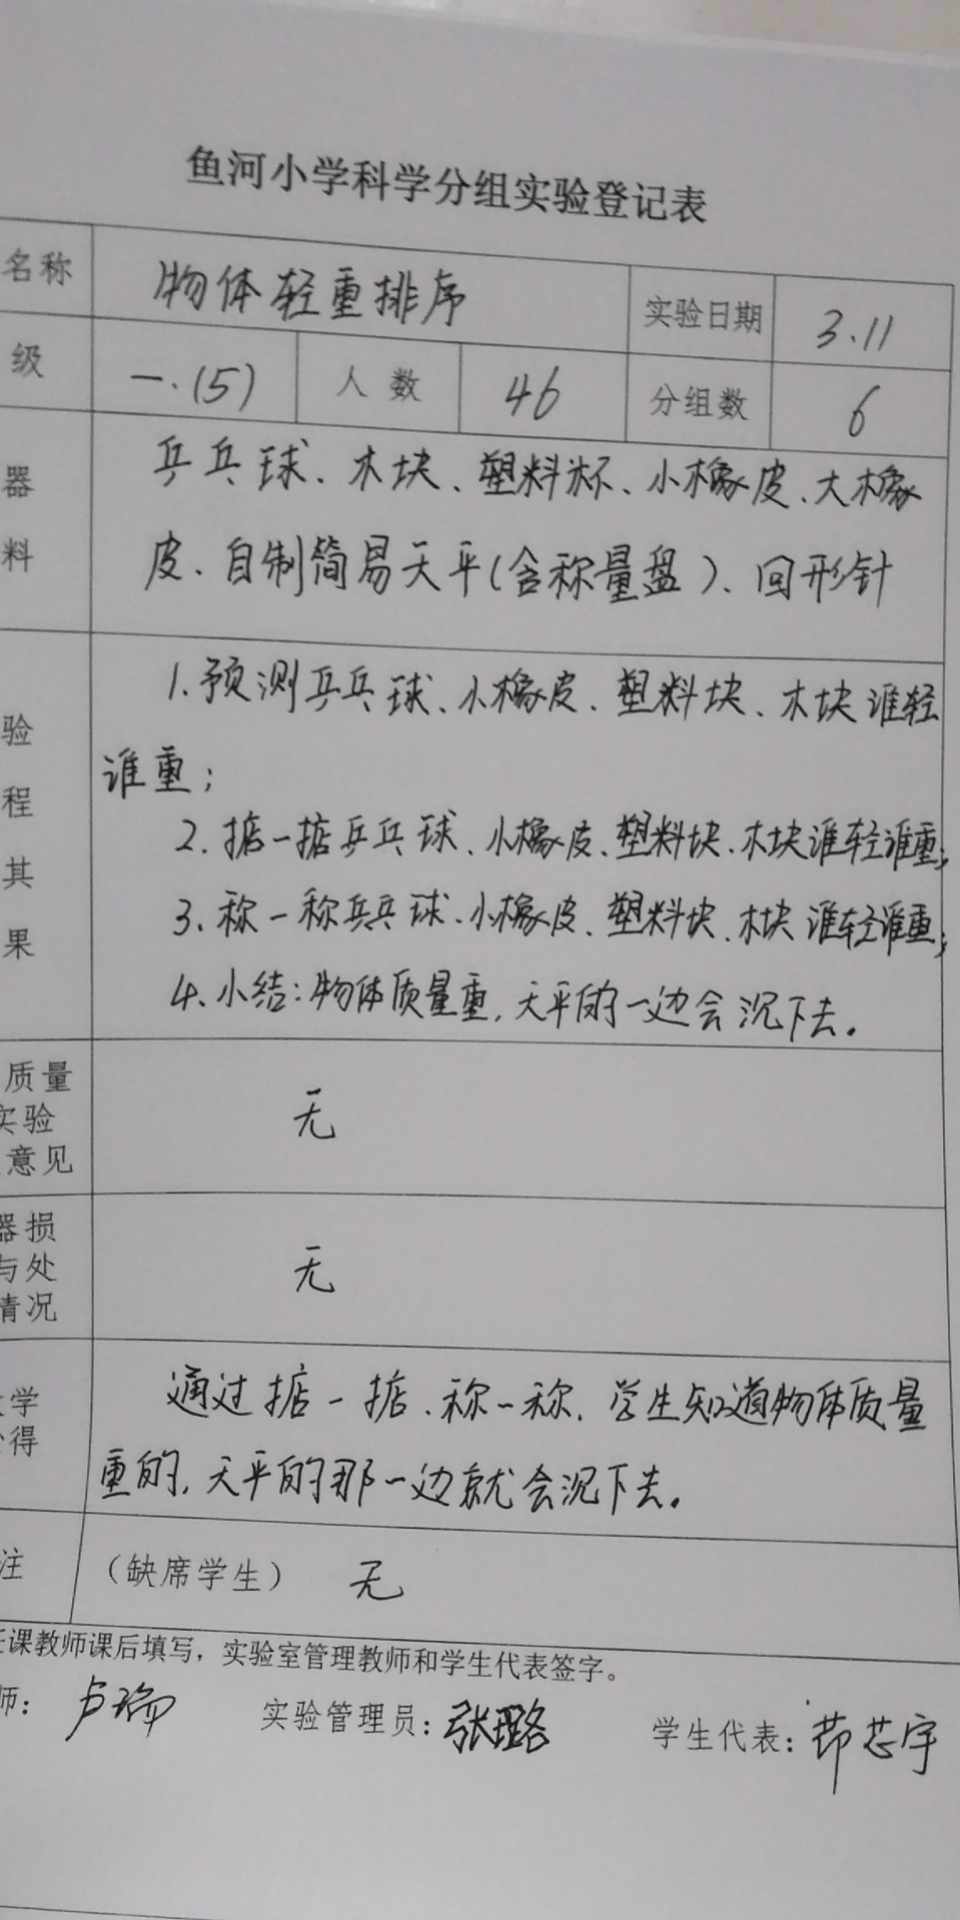 鱼河小学科学分组实验登记表
名称 物体轻重排序 实验日期 3.11
级 一.(5) 人数 46 分组数 6
器 乒乓球、木块、塑料杯、小橡皮、大橡
料 皮、自制简易天平(含称量盘)、回形针
1.预测乒乓球、小橡皮、塑料块、木块谁轻
验
谁重;
程 2.掂一掂乒乓球、小橡皮、塑料块、木块谁轻谁重;
其
果 3.称一称乒乓球、小橡皮、塑料块、木块谁轻谁重;
4.小结:物体质量重,天平的一边会沉下去。
质量
实验 无
意见
器损
与处 无
情况
学 通过掂一掂、称一称,学生知道物体质量
得 重的,天平的那一边就会沉下去。
注 (缺席学生) 无
任课教师课后填写,实验室管理教师和学生代表签字。
师: 卢瑜 实验管理员: 张璐 学生代表: 芯宇